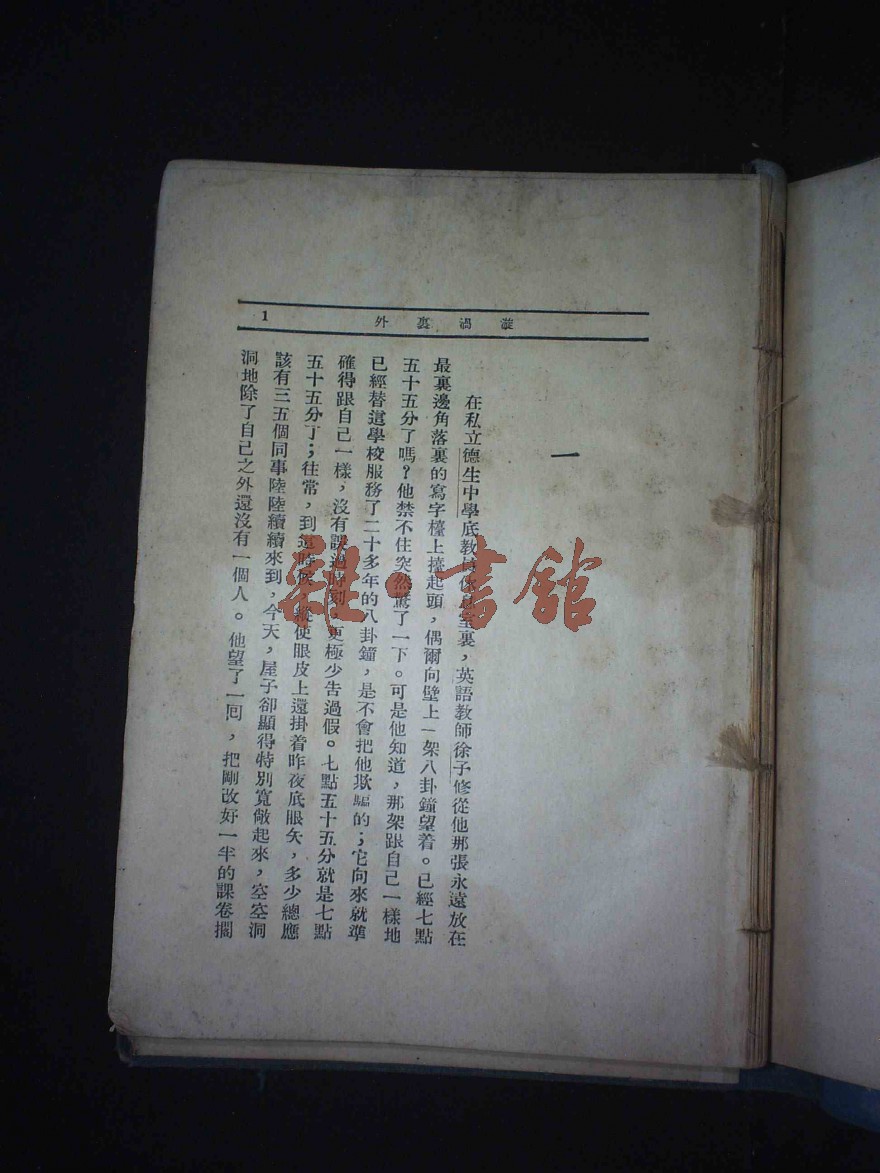 漩渦裏外
1
一
在私立德生中學底教員休息室裏，英語教師徐子修從他那張永遠放在
最裏邊角落裏的寫字檯上擡起頭，偶爾向壁上一架八卦鐘望着。已經七點
五十五分了嗎？他禁不住突然驚了一下。可是他知道，那架跟自己一樣地
已經替這學校服務了二十多年的八卦鐘，是不會把他欺騙的；它向來就準
確得跟自己一樣，沒有誤過時刻，更極少告過假。七點五十五分就是七點
五十五分了；往常，到這時候，縱使眼皮上還掛着昨夜底眼矢，多少總應
該有三五個同事陸陸續續來到，今天，屋子卻顯得特別寬敞起來，空空洞
洞地除了自己之外還沒有一個人。他望了一囘，把剛改好一半的課卷擱
雜·書館